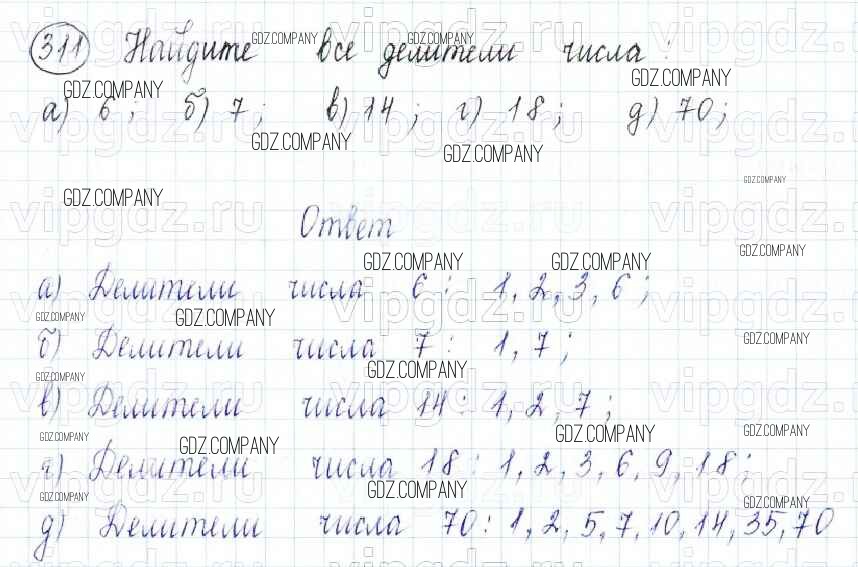 311 Найдите все делители числа:
а) 6; б) 7; в) 14; г) 18; д) 70;
Ответ
а) Делители числа 6: 1, 2, 3, 6;
б) Делители числа 7: 1, 7;
в) Делители числа 14: 1, 2, 7;
г) Делители числа 18: 1, 2, 3, 6, 9, 18;
д) Делители числа 70: 1, 2, 5, 7, 10, 14, 35, 70
GDZ.COMPANY
vipgdz.ru